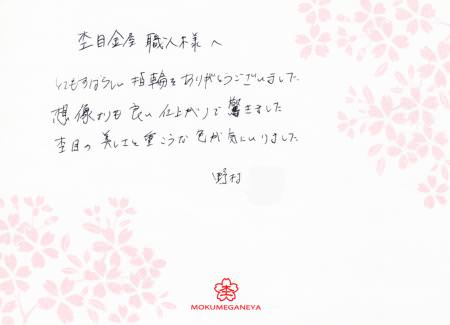 杢目金屋 職人様へ
とてもすばらしい指輪をありがとうございました
想像よりも良い仕上がりで驚きました
杢目の美しさと重こうな色が気にいりました
野村
杢
MOKUMEGANEYA